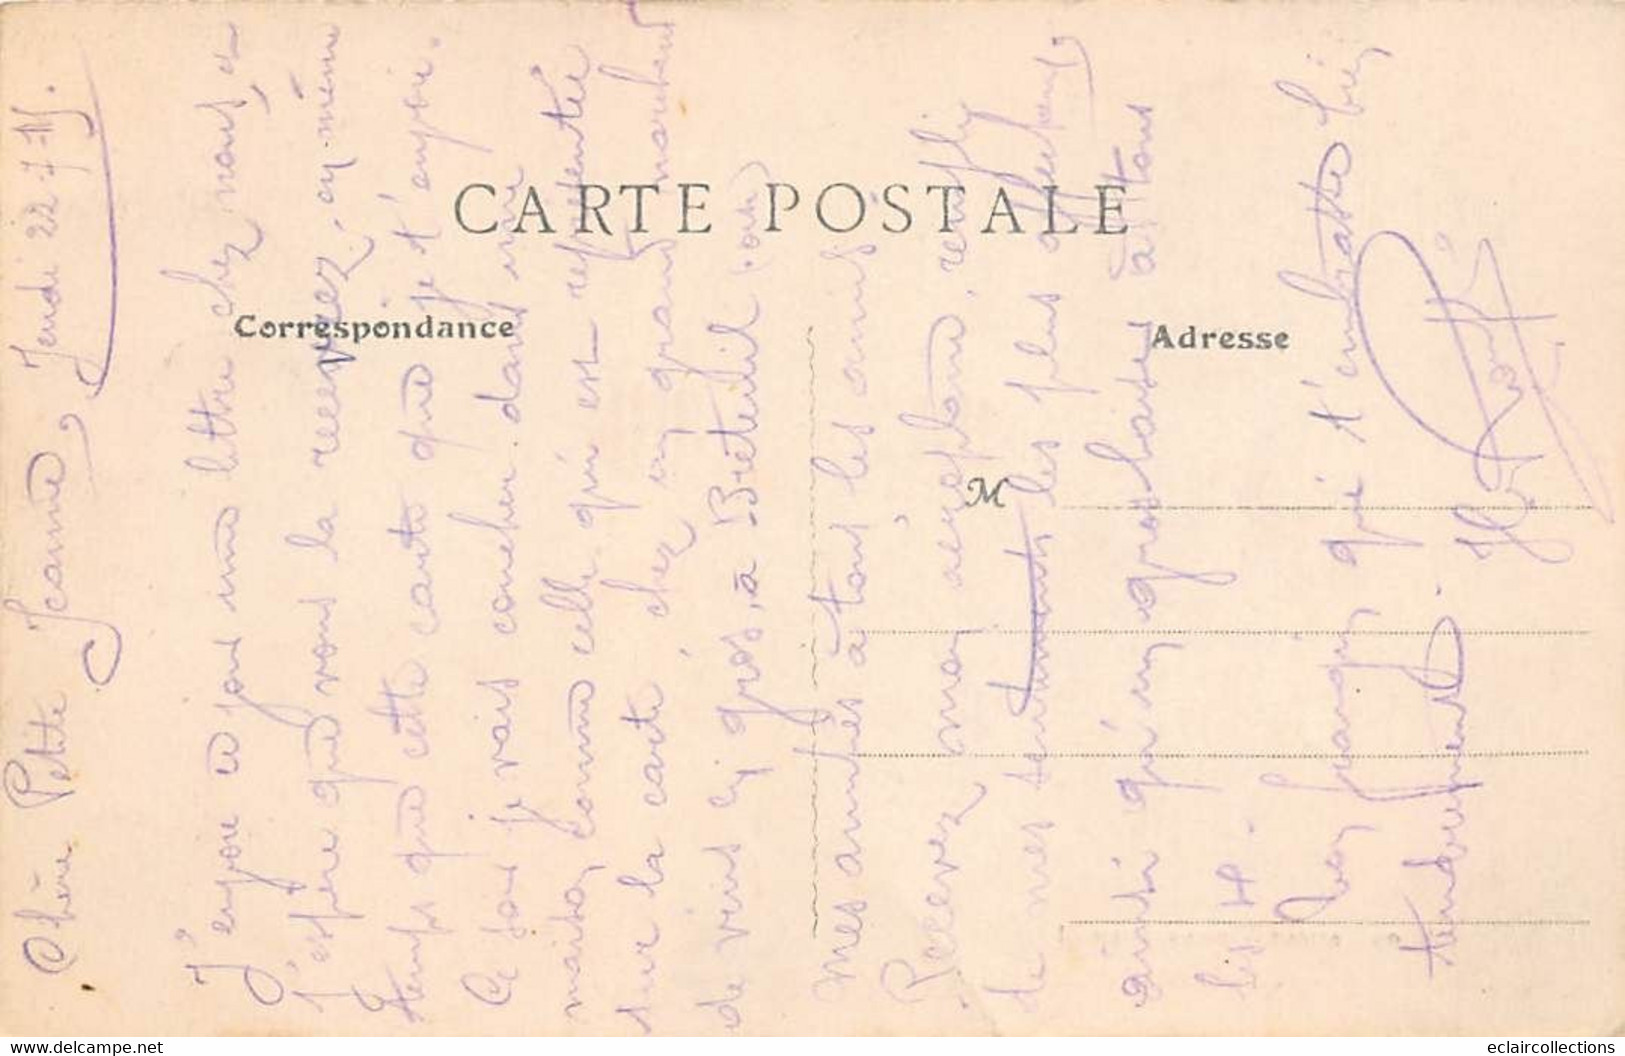 CARTE POSTALE
Correspondance
Adresse
M
Chère Petite Jeanne, Jeudi 22-7-15.
J'envoie ce jour une lettre chez nous, et
j'espère que vous la recevrez, en même
temps que cette carte que je t'envoie.
Ce soir je vais coucher dans une
maison, comme celle qui est représentée
sur la carte chez un grand marchand
de vins en gros, à Breteuil
mes amitiés à tous les amis
Recevez mon aéroplane rempli
de mes sentiments les plus affectueux,
ainsi qu'un gros baiser à tous
les 4.
Ton qui t'embrasse bien
tendrement.
www.delcampe.net
eclaircollections